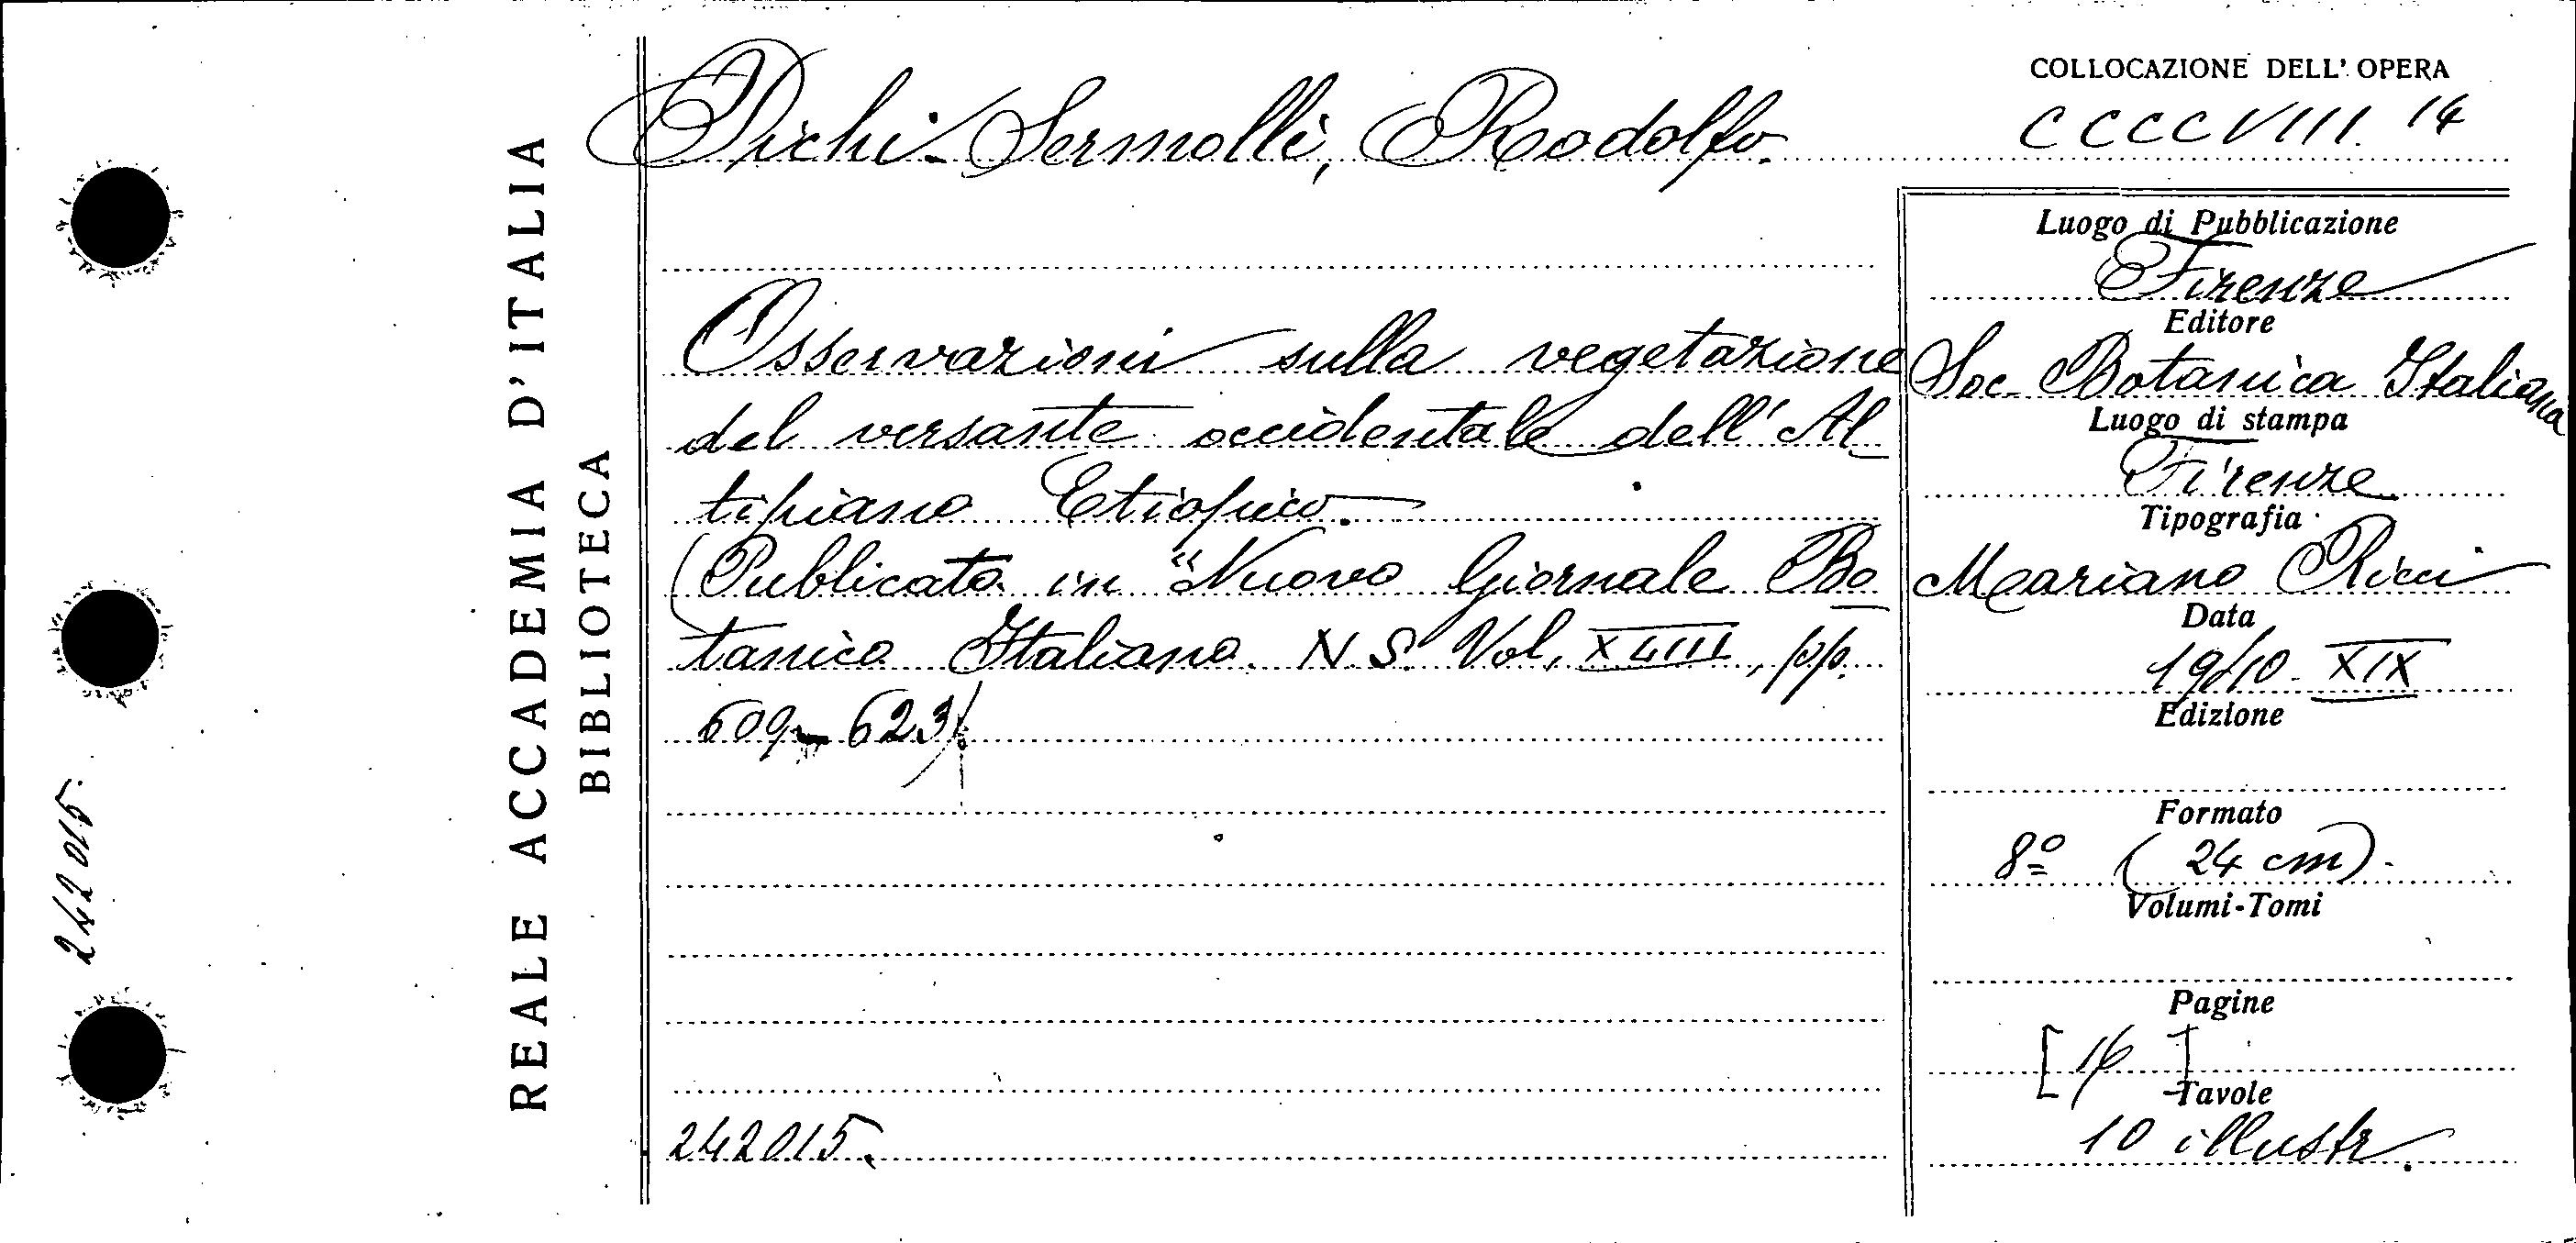 REALE ACCADEMIA D'ITALIA
BIBLIOTECA
242015.
Pichi-Sermolli, Rodolfo.
Osservazioni sulla vegetazione
del versante occidentale dell'Al
tipiano Etiopico.
(Publicato in "Nuovo Giornale Bo
tanico Italiano. N. S. Vol. XLIII, pp.
609-623).
242015.
COLLOCAZIONE DELL'OPERA
CCCCVIII. 14
Luogo di Pubblicazione
Firenze
Editore
Soc. Botanica Italiana
Luogo di stampa
Firenze
Tipografia
Mariano Ricci
Data
1940-XIX
Edizione
Formato
8º (24 cm).
Volumi-Tomi
Pagine
[16]
Tavole
10 illustr.